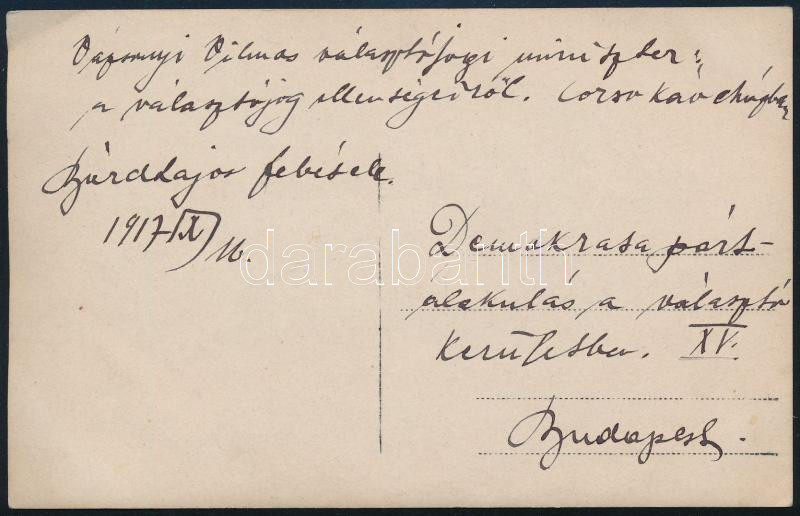 Vázsonyi Vilmos választójogi miniszter:
a választójog ellenségeiről. Corso kávéházban
Bárd Lajos
1917 IX/16.
Demokrasa párt-
alakulás a választó
kerületben. XV.
Budapest.
darabanth